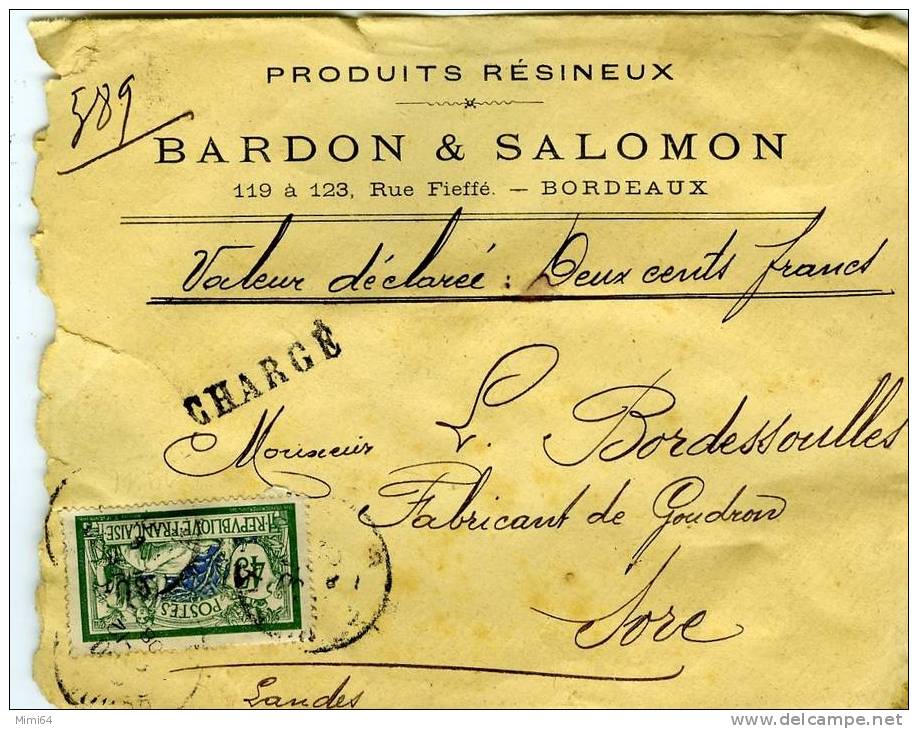 PRODUITS RÉSINEUX
589
BARDON & SALOMON
119 à 123, Rue Fieffé. — BORDEAUX
Valeur déclareé : Deux cents francs
CHARGÉ
Monsieur L. Bordessoulles
Fabricant de Goudron
REPVBLIQVE FRANÇAISE
45
POSTES
Sore
Landes
Mimi64
www.delcampe.net